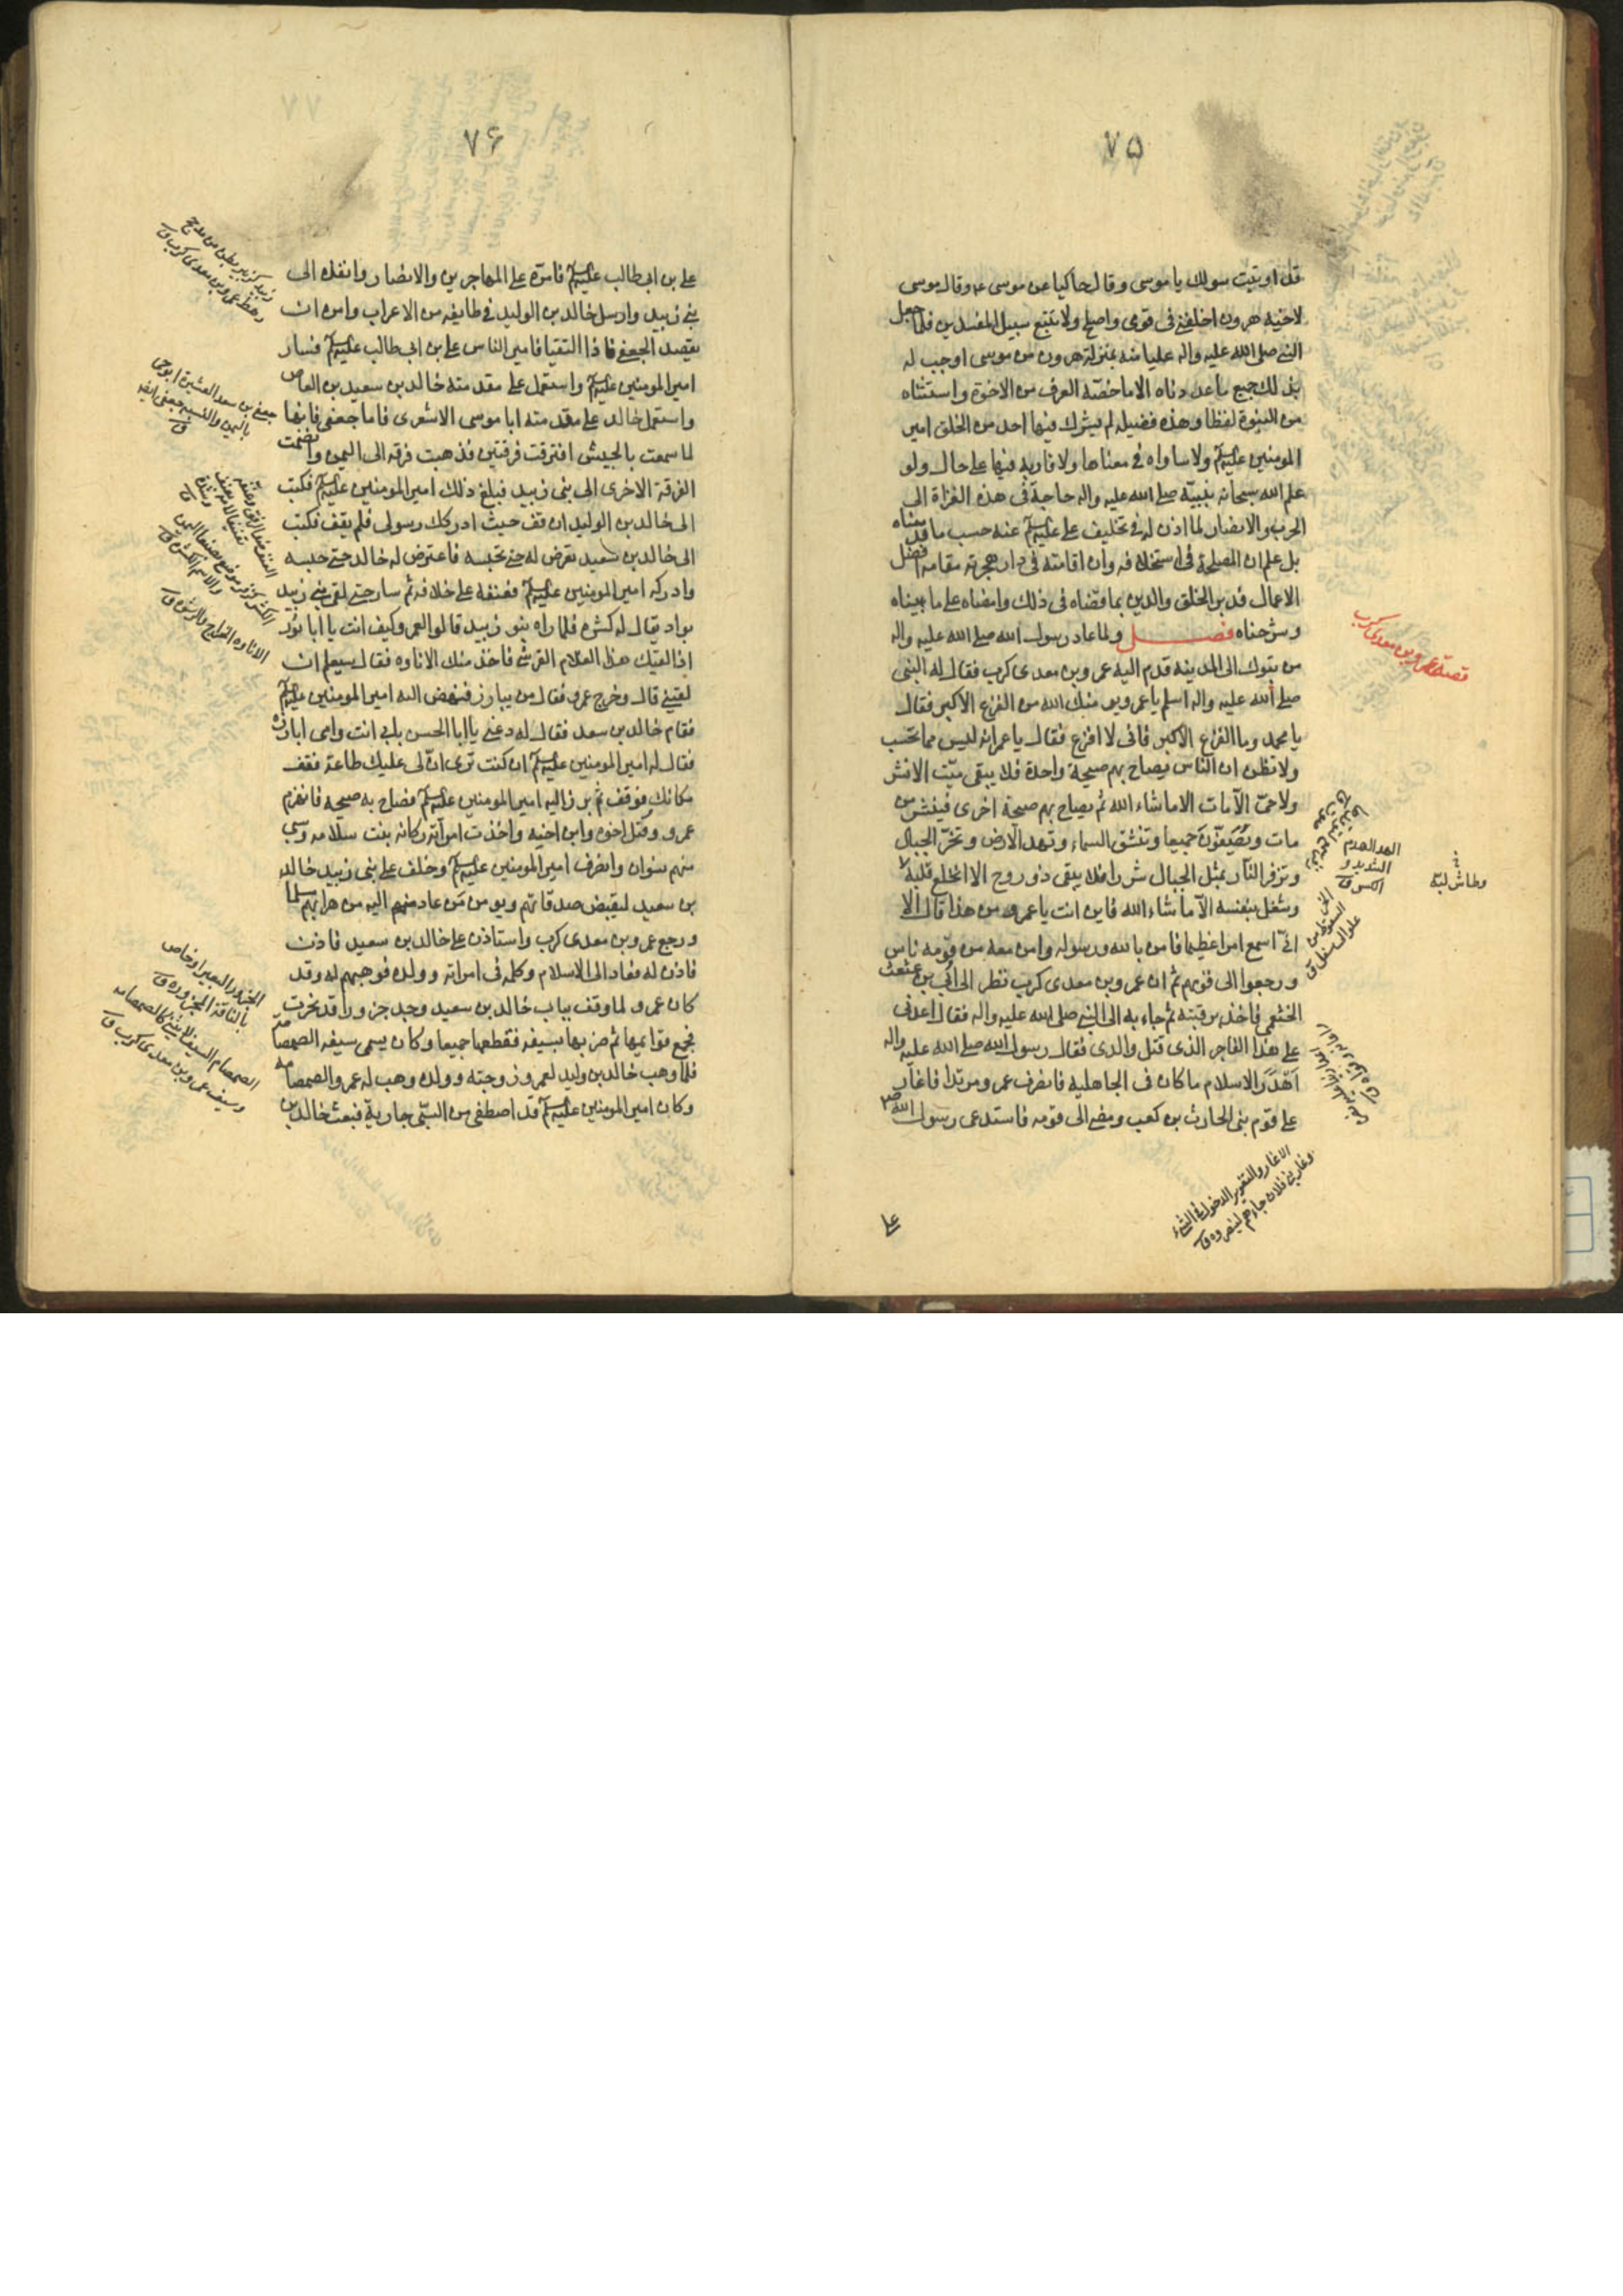 ۷۵
قد اوتيت سولك يا موسى وقال حاكيا عن موسى عه وقال موسى
لاخيه هرون اخلفنى فى قومى واصلح ولا تتبع سبيل المفسدين فلما جعل
النبى صلى الله عليه واله عليا منه بمنزلة هرون من موسى اوجب له
بذلك جميع ما عددناه الا ما خصّته العرف من الاخوة واستثناه
من النبوة لفظا وهذه فضيلة لم يشرك فيها احد من الخلق امير
المومنين عليه السلم ولا ساواه فى معناها ولا قاربه فيها على حال ولو
علم الله سبحانه بنبيّه صلى الله عليه واله حاجة فى هذه الغزاة الى
الحرب والانصار لما اذن له فى تخليف على عليه السلم عنه حسب ما قد بيناه
بل علم ان المصلحة فى استخلافه وان اقامته فى دار هجرته مقامه افضل
الاعمال فدبر الخلق والدين بما قضاه فى ذلك وامضاه على ما بيناه
وشرحناه فصل ولما عاد رسول الله صلى الله عليه واله
من تبوك الى المدينة قدم اليه عمرو بن معدى كرب فقال له النبى
صلى الله عليه واله اسلم يا عمرو يومنك الله من الفزع الاكبر فقال
يا محمد وما الفزع الاكبر فانى لا افزع فقال يا عمر انه ليس مما تحسب
ولا تظن ان الناس يصاح بهم صيحة واحدة فلا يبقى ميّت الا نشر
ولا حىّ الا مات الا ما شاء الله ثم يصاح بهم صيحة اخرى فينشر من
مات ويصفّون جميعا وتنشق السماء وتهد الارض وتخرّ الجبال
وتزفر النار بمثل الجبال شررا فلا يبقى ذو روح الا انخلع قلبه
وشغل بنفسه الا ما شاء الله فاين انت يا عمرو من هذا قال الا
انى اسمع امرا عظيما فامن بالله ورسوله وامن معه من قومه ناس
ورجعوا الى قومهم ثم ان عمرو بن معدى كرب نظر الى ابى بن عثعث
الخثعمى فاخذ برقبته ثم جاء به الى النبى صلى الله عليه واله فقال اعدنى
على هذا الفاجر الذى قتل والدى فقال رسول الله صلى الله عليه واله
اهدر الاسلام ما كان فى الجاهلية فانصرف عمرو مرتدا فاغار
على قوم بنى الحارث بن كعب ومضى الى قومه فاستدعى رسول الله ص
على
قصة عمرو بن معدى كرب
الهد الهدم
الشديد و
الكسر ق
وطاش لبّه
الخر
السقوط من
علو الى سفل ق
الاغار والتغوير الدخول فى الشىء
وغار بنى فلان جاءهم لينصروه ق
۷۶
على بن ابى طالب عليه السلم فامّره على المهاجرين والانصار وانفذه الى
بنى زبيد وارسل خالد بن الوليد فى طايفه من الاعراب وامره ان
يقصد الجعفى فاذا التقيا فامير الناس على بن ابى طالب عليه السلم فسار
امير المومنين عليه السلم واستعمل على مقدمته خالد بن سعيد بن العاص
واستعمل خالد على مقدمته ابا موسى الاشعرى فاما جعفى فانها
لما سمعت بالجيش افترقت فرقتين فذهبت فرقه الى اليمن وانضمت
الفرقة الاخرى الى بنى زبيد فبلغ ذلك امير المومنين عليه السلم فكتب
الى خالد بن الوليد ان قف حيث ادركك رسولى فلم يقف فكتب
الى خالد بن سعيد تعرض له حتى تحبسه فاعترض له خالد حتى حبسه
وادركه امير المومنين عليه السلم فعنفه على خلافه ثم سار حتى لقى بنى زبيد
بواد يقال له كشره فلما راه بنو زبيد قالوا لعمرو كيف انت يا ابا ثور
اذا لقيك هذا الغلام القرشى فاخذ منك الاتاوه فقال سيعلم ان
لقينى قال وخرج عمرو فقال من يبارز فنهض اليه امير المومنين عليه السلم
فقام خالد بن سعد فقال له دعنى يا ابا الحسن بابى انت وامى ابارزه
فقال له امير المومنين عليه السلم ان كنت ترى ان لى عليك طاعة فقف
مكانك فوقف ثم برز اليه امير المومنين عليه السلم فصاح به صيحه فانهزم
عمرو وقتل اخوه وابن اخيه واخذت امراته ركانه بنت سلامه وسبى
منهم نسوان وانصرف امير المومنين عليه السلم وخلف على بنى زبيد خالد
بن سعيد ليقبض صدقاتهم ويومن من عاد منهم اليه من هرابهم مسلما
ورجع عمرو بن معدى كرب واستاذن على خالد بن سعيد فاذن
فاذن له فعاد الى الاسلام وكلمه فى امراته وولده فوهبهم له وقد
كان عمرو لما وقف بباب خالد بن سعيد وجد جزورا قد نحرت
فجمع قوايمها ثم ضربها بسيفه فقطعها جميعا وكان يسمى سيفه الصمصامه
فلما وهب خالد بن وليد لعمرو زوجته وولده وهب له عمرو الصمصامه
وكان امير المومنين عليه السلم قد اصطفى من السبى جارية فبعث خالد بن
زبيد كزبير بطن من مذحج
رهط عمرو بن معدى كرب ق
جعفى بن سعد العشيرة ابو حى
باليمن والنسبة جعفى ايضا
ق
الاتاوه الخراج والرشوه ق
الجزور البعير او خاص
بالناقة المجزوره ق
الصمصام السيف لا ينثنى كالصمصامه
وسيف عمرو بن معدى كرب ق